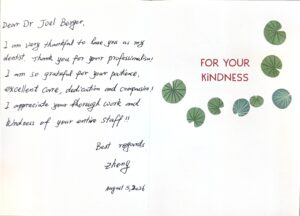 Dear Dr Joel Berger,
I am very thankful to have you as my
dentist. Thank you for your professionalism!
I am so grateful for your patience,
excellent care, dedication and compassion!
I appreciate your thorough work and
kindness of your entire staff!!
Best regards
Zhong
August 5, 2026
FOR YOUR
KINDNESS